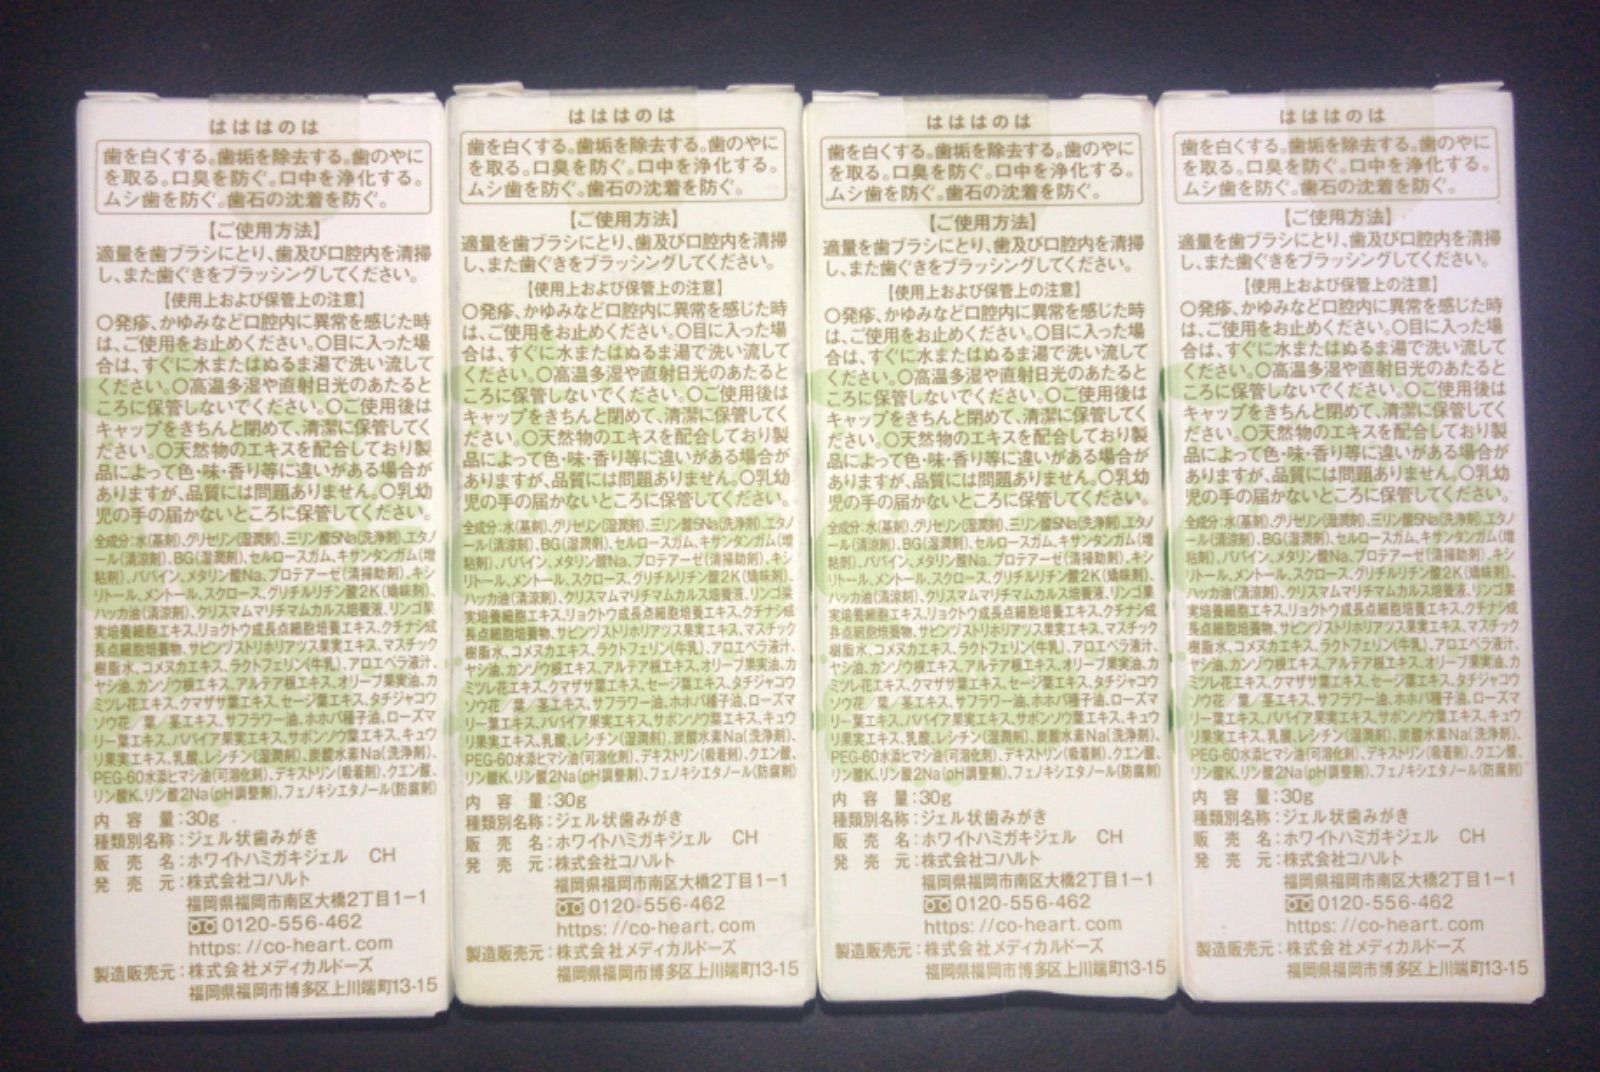 はははのは
歯を白くする。歯垢を除去する。歯のやに
を取る。口臭を防ぐ。口中を浄化する。
ムシ歯を防ぐ。歯石の沈着を防ぐ。
【ご使用方法】
適量を歯ブラシにとり、歯及び口腔内を清掃
し、また歯ぐきをブラッシングしてください。
【使用上および保管上の注意】
○発疹、かゆみなど口腔内に異常を感じた時
は、ご使用をお止めください。○目に入った場
合は、すぐに水またはぬるま湯で洗い流して
ください。○高温多湿や直射日光のあたると
ころに保管しないでください。○ご使用後は
キャップをきちんと閉めて、清潔に保管してく
ださい。○天然物のエキスを配合しており製
品によって色・味・香り等に違いがある場合が
ありますが、品質には問題ありません。○乳幼
児の手の届かないところに保管してください。
全成分:水(基剤)、グリセリン(湿潤剤)、三リン酸5Na(洗浄剤)、エタノ
ール(清涼剤)、BG(湿潤剤)、セルロースガム、キサンタンガム(増
粘剤)、パパイン、メタリン酸Na、プロテアーゼ(清掃助剤)、キシ
リトール、メントール、スクロース、グリチルリチン酸2K(矯味剤)、
ハッカ油(清涼剤)、クリスマムマリチマムカルス培養液、リンゴ果
実培養細胞エキス、リョクトウ成長点細胞培養エキス、クチナシ成
長点細胞培養物、サピンヅストリホリアツス果実エキス、マスチック
樹脂水、コメヌカエキス、ラクトフェリン(牛乳)、アロエベラ液汁、
ヤシ油、カンゾウ根エキス、アルテア根エキス、オリーブ果実油、カ
ミツレ花エキス、クマザサ葉エキス、セージ葉エキス、タチジャコウ
ソウ花/葉/茎エキス、サフラワー油、ホホバ種子油、ローズマ
リー葉エキス、パパイア果実エキス、サボンソウ葉エキス、キュウ
リ果実エキス、乳酸、レシチン(湿潤剤)、炭酸水素Na(洗浄剤)、
PEG-60水添ヒマシ油(可溶化剤)、デキストリン(吸着剤)、クエン酸、
リン酸K、リン酸2Na(pH調整剤)、フェノキシエタノール(防腐剤)
内容量:30g
種類別名称:ジェル状歯みがき
販売名:ホワイトハミガキジェル CH
発売元:株式会社コハルト
福岡県福岡市南区大橋2丁目1-1
0120-556-462
https://co-heart.com
製造販売元:株式会社メディカルドーズ
福岡県福岡市博多区上川端町13-15
はははのは
歯を白くする。歯垢を除去する。歯のやに
を取る。口臭を防ぐ。口中を浄化する。
ムシ歯を防ぐ。歯石の沈着を防ぐ。
【ご使用方法】
適量を歯ブラシにとり、歯及び口腔内を清掃
し、また歯ぐきをブラッシングしてください。
【使用上および保管上の注意】
○発疹、かゆみなど口腔内に異常を感じた時
は、ご使用をお止めください。○目に入った場
合は、すぐに水またはぬるま湯で洗い流して
ください。○高温多湿や直射日光のあたると
ころに保管しないでください。○ご使用後は
キャップをきちんと閉めて、清潔に保管してく
ださい。○天然物のエキスを配合しており製
品によって色・味・香り等に違いがある場合が
ありますが、品質には問題ありません。○乳幼
児の手の届かないところに保管してください。
全成分:水(基剤)、グリセリン(湿潤剤)、三リン酸5Na(洗浄剤)、エタノ
ール(清涼剤)、BG(湿潤剤)、セルロースガム、キサンタンガム(増
粘剤)、パパイン、メタリン酸Na、プロテアーゼ(清掃助剤)、キシ
リトール、メントール、スクロース、グリチルリチン酸2K(矯味剤)、
ハッカ油(清涼剤)、クリスマムマリチマムカルス培養液、リンゴ果
実培養細胞エキス、リョクトウ成長点細胞培養エキス、クチナシ成
長点細胞培養物、サピンヅストリホリアツス果実エキス、マスチック
樹脂水、コメヌカエキス、ラクトフェリン(牛乳)、アロエベラ液汁、
ヤシ油、カンゾウ根エキス、アルテア根エキス、オリーブ果実油、カ
ミツレ花エキス、クマザサ葉エキス、セージ葉エキス、タチジャコウ
ソウ花/葉/茎エキス、サフラワー油、ホホバ種子油、ローズマ
リー葉エキス、パパイア果実エキス、サボンソウ葉エキス、キュウ
リ果実エキス、乳酸、レシチン(湿潤剤)、炭酸水素Na(洗浄剤)、
PEG-60水添ヒマシ油(可溶化剤)、デキストリン(吸着剤)、クエン酸、
リン酸K、リン酸2Na(pH調整剤)、フェノキシエタノール(防腐剤)
内容量:30g
種類別名称:ジェル状歯みがき
販売名:ホワイトハミガキジェル CH
発売元:株式会社コハルト
福岡県福岡市南区大橋2丁目1-1
0120-556-462
https://co-heart.com
製造販売元:株式会社メディカルドーズ
福岡県福岡市博多区上川端町13-15
はははのは
歯を白くする。歯垢を除去する。歯のやに
を取る。口臭を防ぐ。口中を浄化する。
ムシ歯を防ぐ。歯石の沈着を防ぐ。
【ご使用方法】
適量を歯ブラシにとり、歯及び口腔内を清掃
し、また歯ぐきをブラッシングしてください。
【使用上および保管上の注意】
○発疹、かゆみなど口腔内に異常を感じた時
は、ご使用をお止めください。○目に入った場
合は、すぐに水またはぬるま湯で洗い流して
ください。○高温多湿や直射日光のあたると
ころに保管しないでください。○ご使用後は
キャップをきちんと閉めて、清潔に保管してく
ださい。○天然物のエキスを配合しており製
品によって色・味・香り等に違いがある場合が
ありますが、品質には問題ありません。○乳幼
児の手の届かないところに保管してください。
全成分:水(基剤)、グリセリン(湿潤剤)、三リン酸5Na(洗浄剤)、エタノ
ール(清涼剤)、BG(湿潤剤)、セルロースガム、キサンタンガム(増
粘剤)、パパイン、メタリン酸Na、プロテアーゼ(清掃助剤)、キシ
リトール、メントール、スクロース、グリチルリチン酸2K(矯味剤)、
ハッカ油(清涼剤)、クリスマムマリチマムカルス培養液、リンゴ果
実培養細胞エキス、リョクトウ成長点細胞培養エキス、クチナシ成
長点細胞培養物、サピンヅストリホリアツス果実エキス、マスチック
樹脂水、コメヌカエキス、ラクトフェリン(牛乳)、アロエベラ液汁、
ヤシ油、カンゾウ根エキス、アルテア根エキス、オリーブ果実油、カ
ミツレ花エキス、クマザサ葉エキス、セージ葉エキス、タチジャコウ
ソウ花/葉/茎エキス、サフラワー油、ホホバ種子油、ローズマ
リー葉エキス、パパイア果実エキス、サボンソウ葉エキス、キュウ
リ果実エキス、乳酸、レシチン(湿潤剤)、炭酸水素Na(洗浄剤)、
PEG-60水添ヒマシ油(可溶化剤)、デキストリン(吸着剤)、クエン酸、
リン酸K、リン酸2Na(pH調整剤)、フェノキシエタノール(防腐剤)
内容量:30g
種類別名称:ジェル状歯みがき
販売名:ホワイトハミガキジェル CH
発売元:株式会社コハルト
福岡県福岡市南区大橋2丁目1-1
0120-556-462
https://co-heart.com
製造販売元:株式会社メディカルドーズ
福岡県福岡市博多区上川端町13-15
はははのは
歯を白くする。歯垢を除去する。歯のやに
を取る。口臭を防ぐ。口中を浄化する。
ムシ歯を防ぐ。歯石の沈着を防ぐ。
【ご使用方法】
適量を歯ブラシにとり、歯及び口腔内を清掃
し、また歯ぐきをブラッシングしてください。
【使用上および保管上の注意】
○発疹、かゆみなど口腔内に異常を感じた時
は、ご使用をお止めください。○目に入った場
合は、すぐに水またはぬるま湯で洗い流して
ください。○高温多湿や直射日光のあたると
ころに保管しないでください。○ご使用後は
キャップをきちんと閉めて、清潔に保管してく
ださい。○天然物のエキスを配合しており製
品によって色・味・香り等に違いがある場合が
ありますが、品質には問題ありません。○乳幼
児の手の届かないところに保管してください。
全成分:水(基剤)、グリセリン(湿潤剤)、三リン酸5Na(洗浄剤)、エタノ
ール(清涼剤)、BG(湿潤剤)、セルロースガム、キサンタンガム(増
粘剤)、パパイン、メタリン酸Na、プロテアーゼ(清掃助剤)、キシ
リトール、メントール、スクロース、グリチルリチン酸2K(矯味剤)、
ハッカ油(清涼剤)、クリスマムマリチマムカルス培養液、リンゴ果
実培養細胞エキス、リョクトウ成長点細胞培養エキス、クチナシ成
長点細胞培養物、サピンヅストリホリアツス果実エキス、マスチック
樹脂水、コメヌカエキス、ラクトフェリン(牛乳)、アロエベラ液汁、
ヤシ油、カンゾウ根エキス、アルテア根エキス、オリーブ果実油、カ
ミツレ花エキス、クマザサ葉エキス、セージ葉エキス、タチジャコウ
ソウ花/葉/茎エキス、サフラワー油、ホホバ種子油、ローズマ
リー葉エキス、パパイア果実エキス、サボンソウ葉エキス、キュウ
リ果実エキス、乳酸、レシチン(湿潤剤)、炭酸水素Na(洗浄剤)、
PEG-60水添ヒマシ油(可溶化剤)、デキストリン(吸着剤)、クエン酸、
リン酸K、リン酸2Na(pH調整剤)、フェノキシエタノール(防腐剤)
内容量:30g
種類別名称:ジェル状歯みがき
販売名:ホワイトハミガキジェル CH
発売元:株式会社コハルト
福岡県福岡市南区大橋2丁目1-1
0120-556-462
https://co-heart.com
製造販売元:株式会社メディカルドーズ
福岡県福岡市博多区上川端町13-15